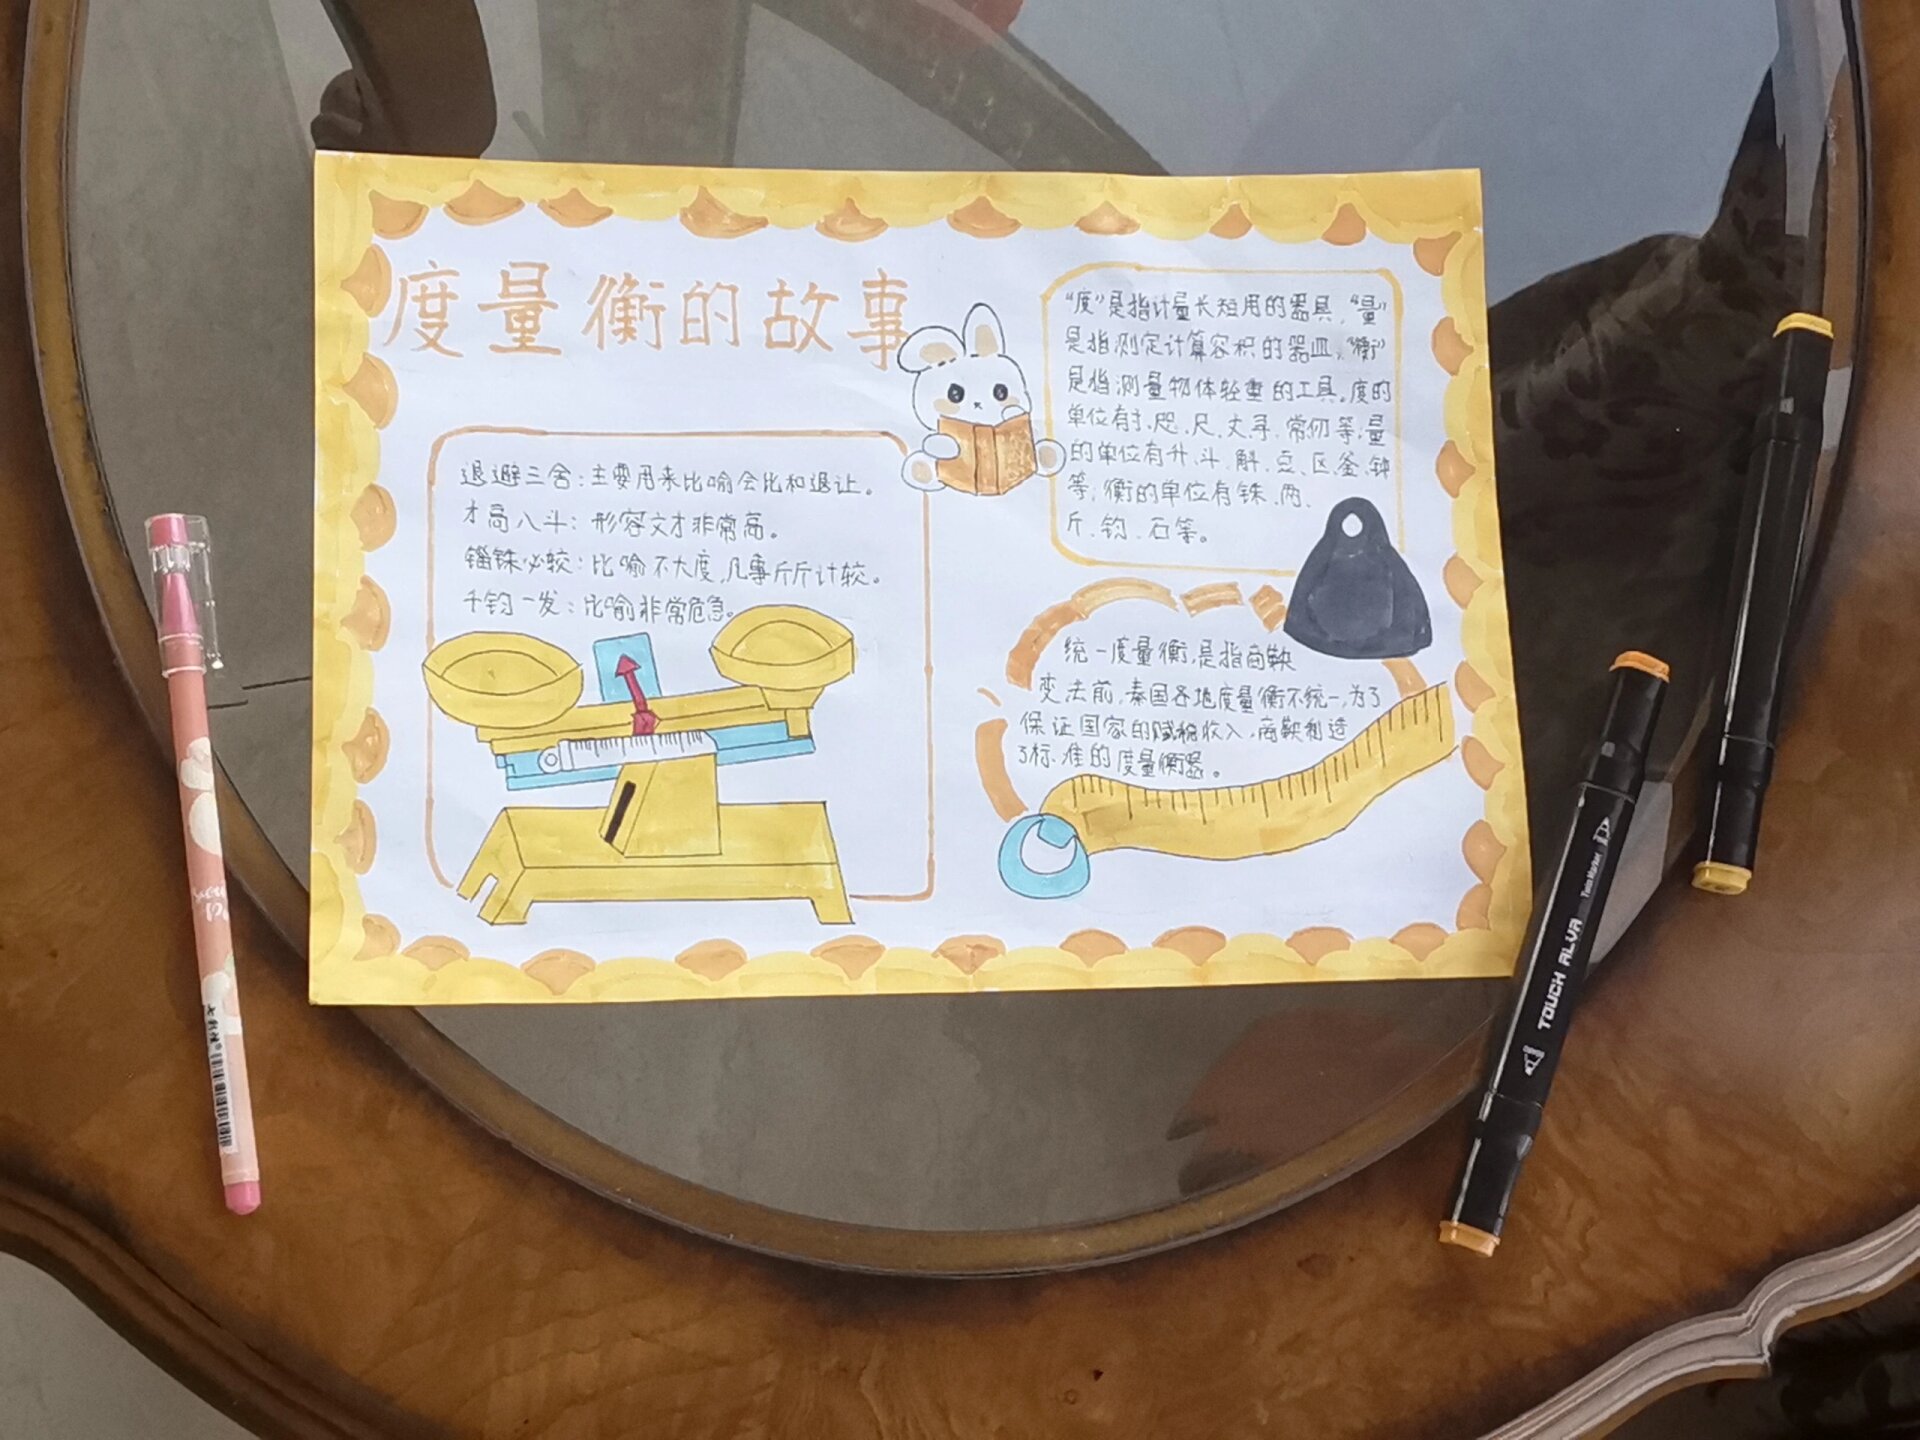 度量衡的故事
退避三舍：主要用来比喻会比和退让。
才高八斗：形容文才非常高。
锱铢必较：比喻不大度，几事斤斤计较。
千钧一发：比喻非常危急。
“度”是指计量长短用的器具，“量”
是指测定计算容积的器皿，“衡”
是指测量物体轻重的工具。度的
单位有、咫、尺、丈、寻、常仞等；量
的单位有升、斗、斛、豆、区、釜、钟
等；衡的单位有铢、两、
斤、钧、石等。
统一度量衡，是指商鞅
变法前，秦国各地度量衡不统一，为了
保证国家的赋税收入，商鞅制造
了标准的度量衡器。
TOUCH ALVA
Twin Marker